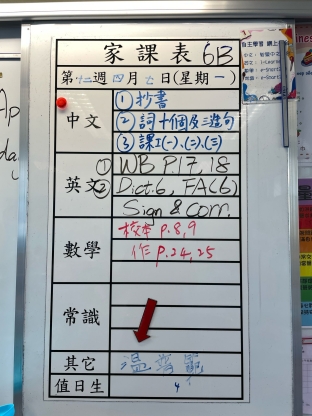 家課表 6B
第十二週 四月七日(星期一)
中文
①抄書
②詞十個及三造句
③課I(一)、(二)、(三)
英文
① WB P.17, 18
② Dict.6, FA(6)
Sign & Corr.
數學
校本 P.8,9
作 P.24,25
常識
其它
溫
值日生
4